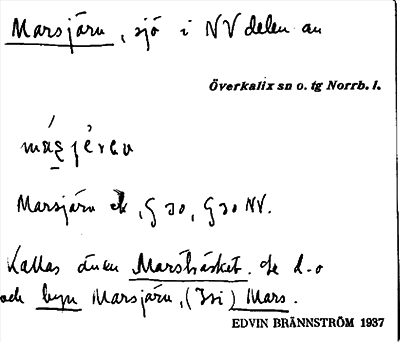 Marsjärv, sjö i NV delen av
Överkalix sn o. tg Norrb. l.
Marsjärv ek, G 30, G 30 NV.
Kallas även Marsträsket. Se d-o
och byn Marsjärv, (Isi) Mars.
EDVIN BRÄNNSTRÖM 1937